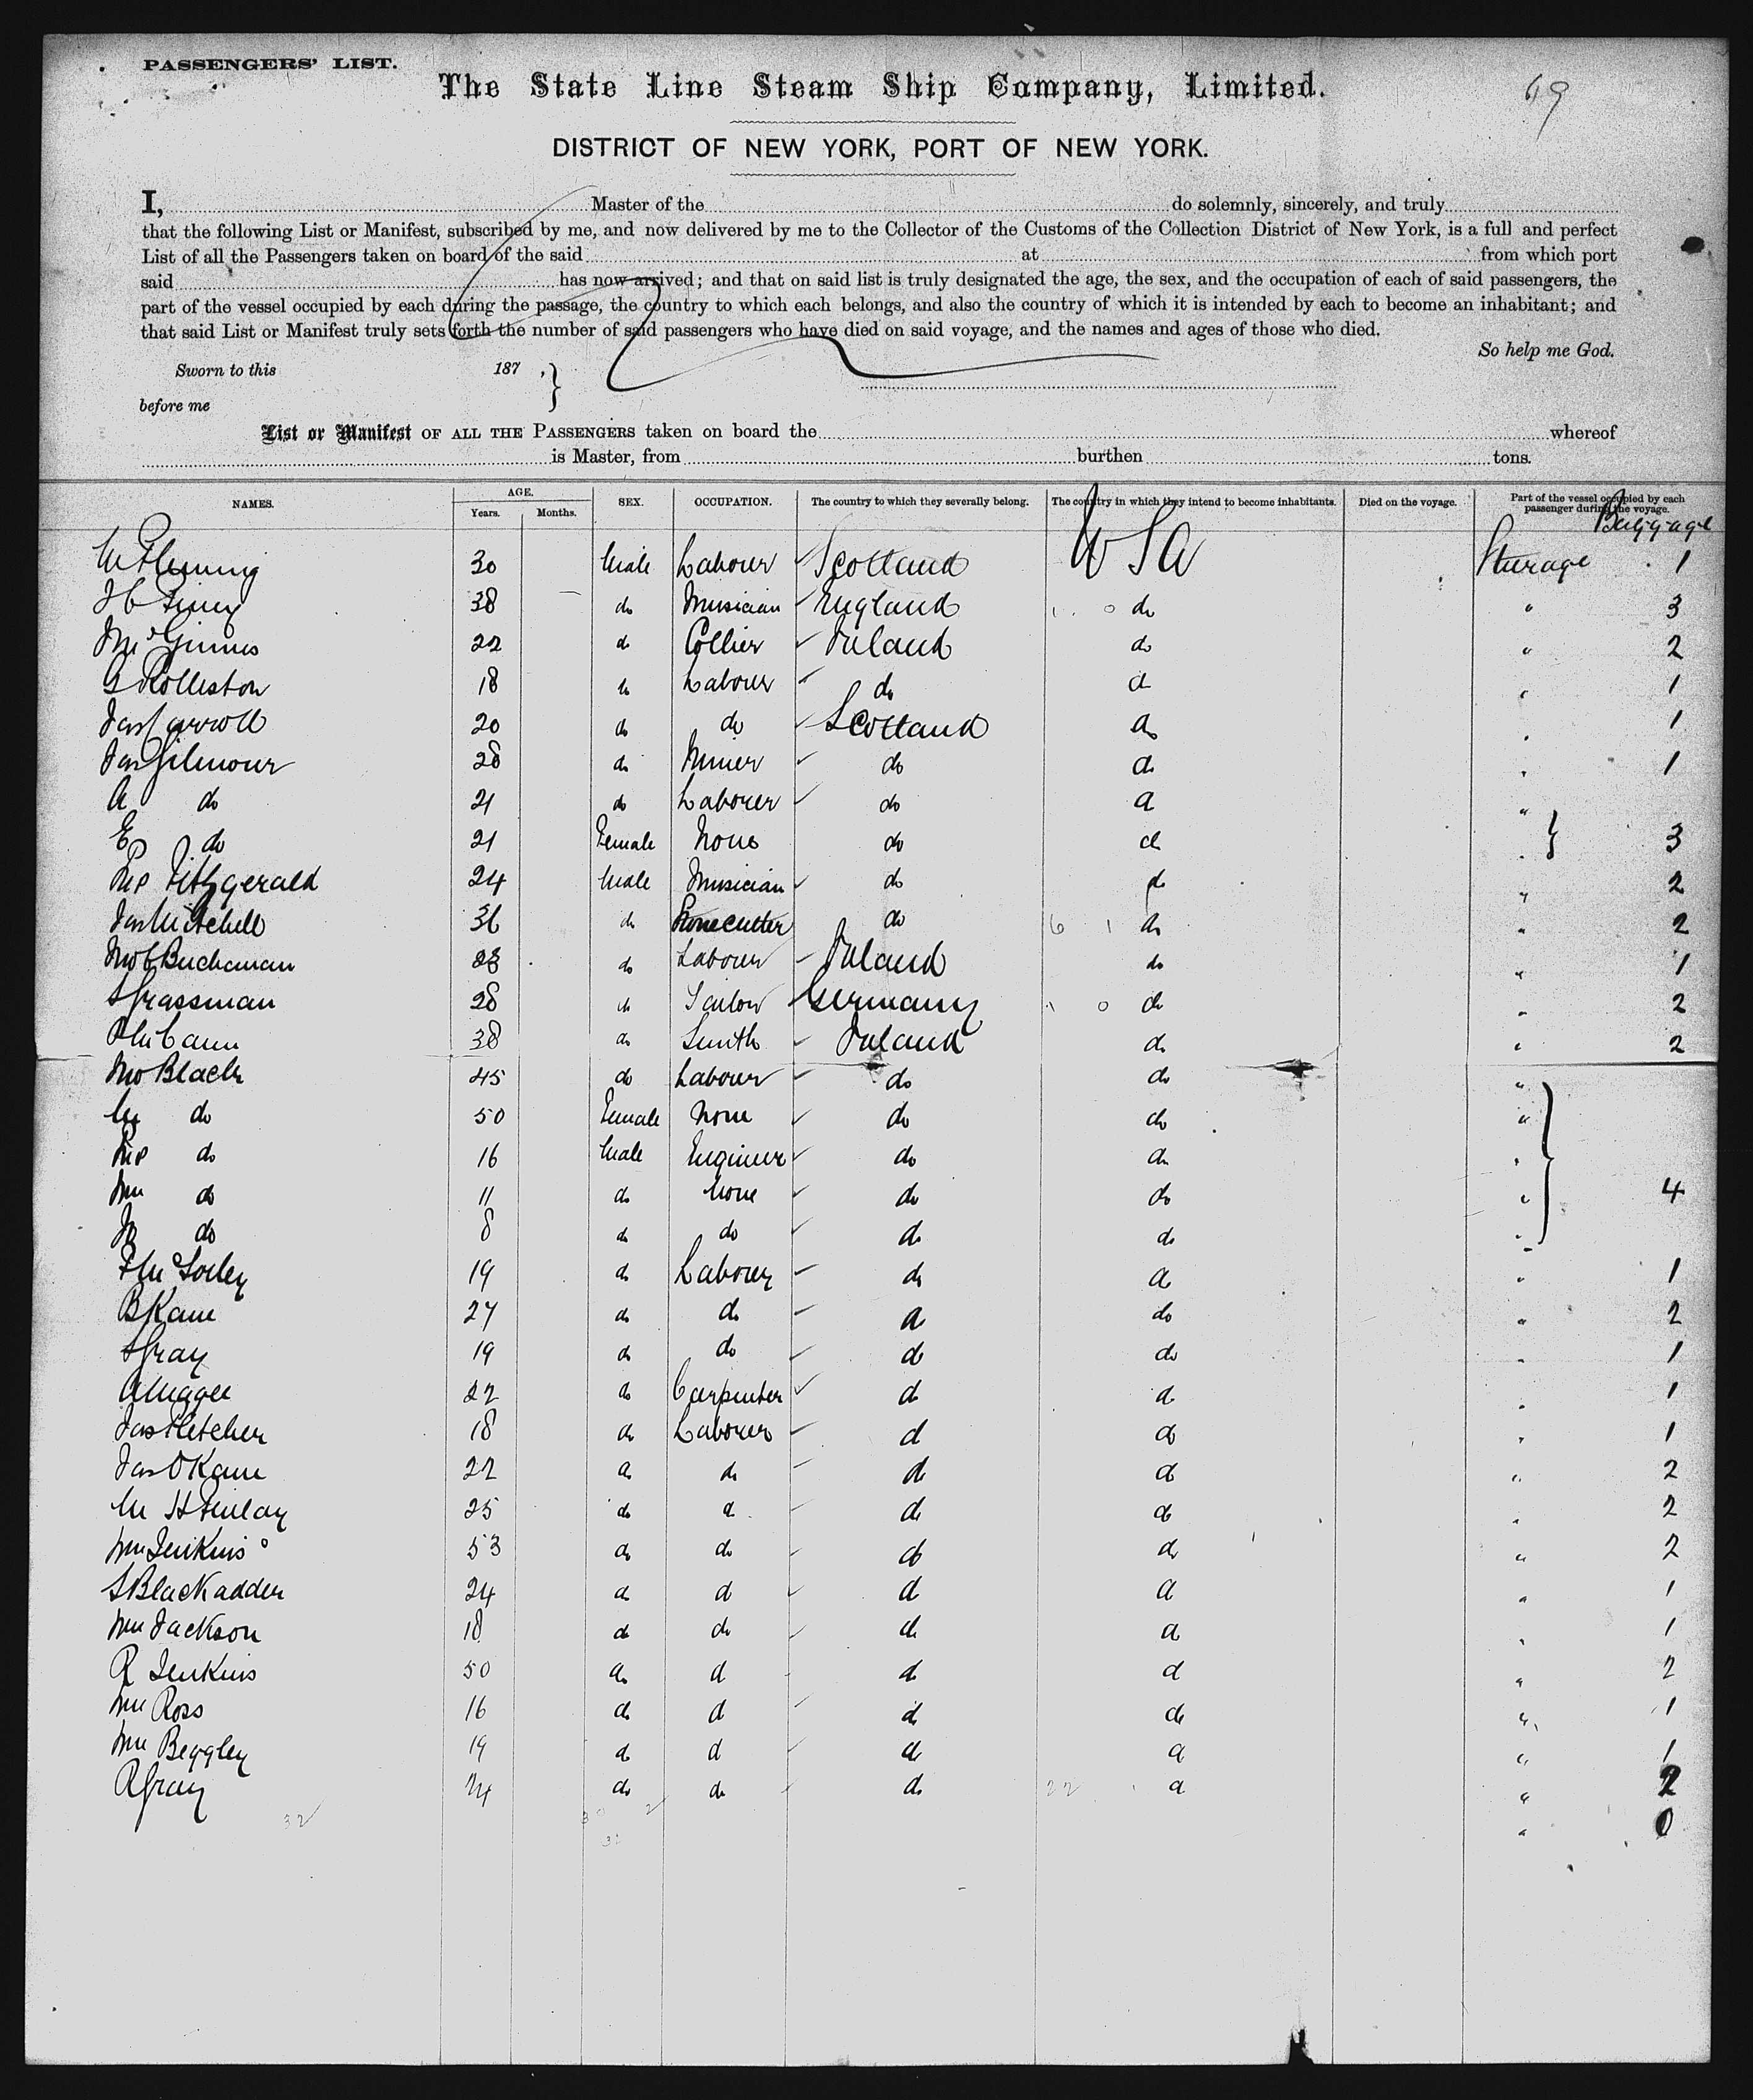 PASSENGERS' LIST.
69
The State Line Steam Ship Company, Limited.
DISTRICT OF NEW YORK, PORT OF NEW YORK.
I, Master of the do solemnly, sincerely, and truly
that the following List or Manifest, subscribed by me, and now delivered by me to the Collector of the Customs of the Collection District of New York, is a full and perfect
List of all the Passengers taken on board of the said at from which port
said has now arrived; and that on said list is truly designated the age, the sex, and the occupation of each of said passengers, the
part of the vessel occupied by each during the passage, the country to which each belongs, and also the country of which it is intended by each to become an inhabitant; and
that said List or Manifest truly sets forth the number of said passengers who have died on said voyage, and the names and ages of those who died.
So help me God.
Sworn to this 187 ,
before me
List or Manifest OF ALL THE PASSENGERS taken on board the whereof
is Master, from burthen tons.
NAMES. AGE. Years. Months. SEX. OCCUPATION. The country to which they severally belong. The country in which they intend to become inhabitants. Died on the voyage. Part of the vessel occupied by each passenger during the voyage.
Baggage
M Fleming 30 Male Labourer Scotland USA Steerage 1
38 do Musician England do " 3
McGinnes 22 do Collier Ireland do " 2
G Rolleston 18 do Labourer do do " 1
Jas Carroll 20 do do Scotland do " 1
Jas Gilmour 28 do Miner do do " 1
A do 21 do Labourer do do "
E do 21 Female None do do " 3
Fitzgerald 24 Male Musician do do " 2
Jas Mitchell 36 do Stonecutter do do " 2
Jno C Buchanan 28 do Labourer Ireland do " 1
S Grassman 28 do Tailor Germany do " 2
P McCann 38 do Smith Ireland do " 2
Jno Black 45 do Labourer do do "
M do 50 Female None do do "
do 16 Male Engineer do do "
Wm do 11 do None do do " 4
do 8 do do do do "
F McSorley 19 do Labourer do do " 1
B Kane 27 do do do do " 2
S Gray 19 do do do do " 1
A Magee 22 do Carpenter do do " 1
Jas Fletcher 18 do Labourer do do " 1
Jas O'Kane 22 do do do do " 2
M H Finlay 25 do do do do " 2
Wm Jenkins 53 do do do do " 2
S Blackadder 24 do do do do " 1
Wm Jackson 18 do do do do " 1
R Jenkins 50 do do do do " 2
Wm Ross 16 do do do do " 1
Wm Beggley 19 do do do do " 1
R Gray 24 do do do do " 2
32 " 0